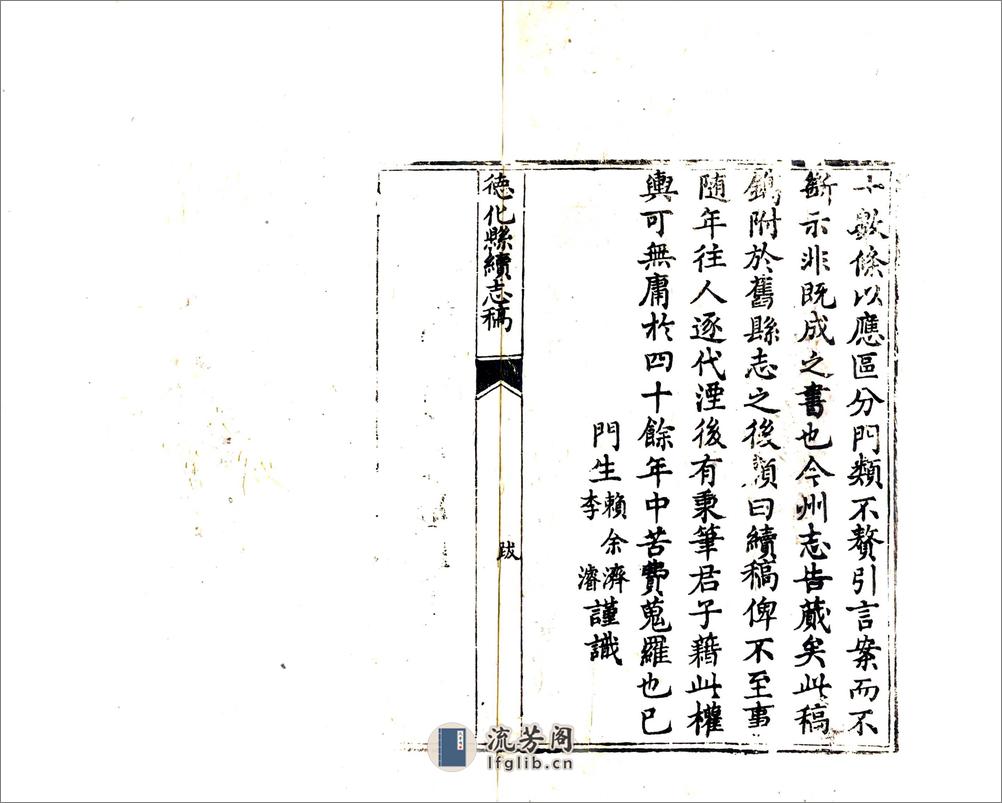 十數條以應區分門類不贅引言案而不
斷示非既成之書也今州志告蕆矣此稿
鐫附於舊縣志之後顏曰續稿俾不至事
隨年往人逐代湮後有秉筆君子藉此權
輿可無庸於四十餘年中苦費蒐羅也已
門生賴余濟
李濬謹識
德化縣續志稿
跋
流芳阁
lfglib.cn